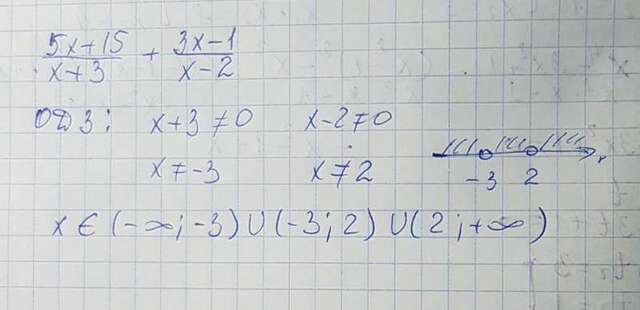 5x+15/x+3 + 3x-1/x-2
ОДЗ: x+3≠0 x-2≠0
x≠-3 x≠2
-3 2 x
x∈(-∞;-3)∪(-3;2)∪(2;+∞)